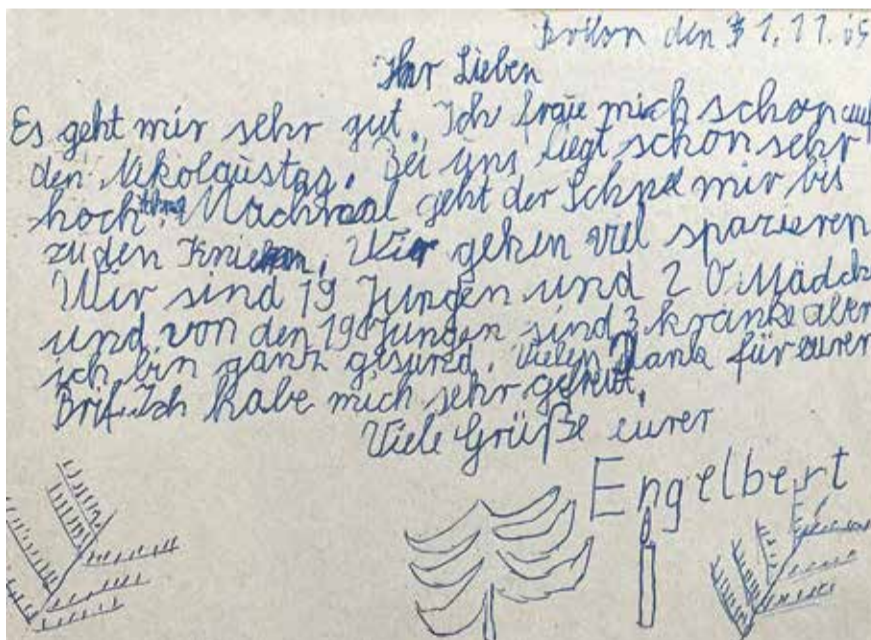 den 1.11.
Ihr Lieben
Es geht mir sehr gut. Ich fraue mich schon auf
den Nikolaustag. Bei uns liegt schon sehr
hoch Machmal geht der Schnee mir bis
zu den Knieen. Wir gehen viel spazieren
Wir sind 19 Jungen und 20 Mädch
und von den 19 Jungen sind 3 kranke aber
ich bin ganz gesund. Vielen Dank für euren
Brif. Ich habe mich sehr gefreut.
Viele Grüße eurer
Engelbert